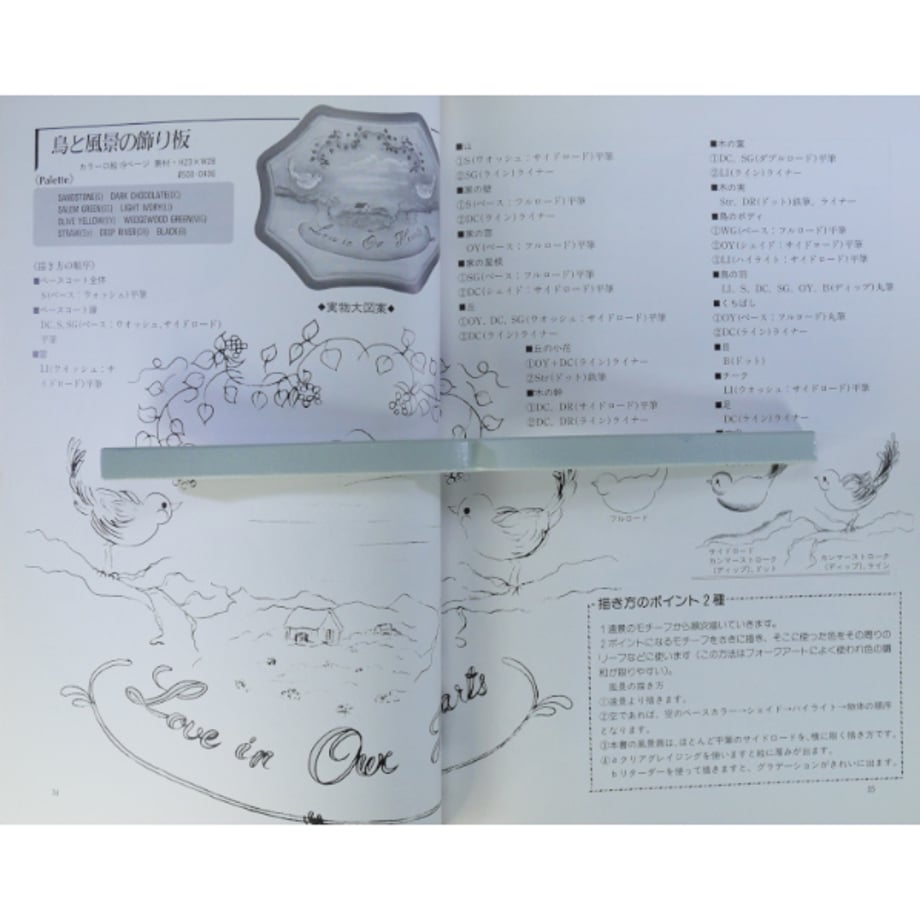 鳥と風景の飾り板
カラー口絵 19ページ 素材・H23×W28
0508-0436
〈Palette〉
SANDSTONE(S) DARK CHOCOLATE(DC)
SALEM GREEN(SG) LIGHT IVORY(LI)
OLIVE YELLOW(OY) WEDGEWOOD GREEN(WG)
STRAW(Str) DEEP RIVER(DR) BLACK(B)
〈描き方の順序〉
■ベースコート全体
S(ベース：ウォッシュ)平筆
■ベースコート縁
DC, S, SG(ベース：ウオッシュ, サイドロード)
平筆
LI(ウォッシュ：サ
イドロード)平筆
◆実物大図案◆
Love in Our
arts
34
■山
①S(ウオッシュ：サイドロード)平筆
②SG(ライン)ライナー
■家の壁
①S(ベース：フルロード)平筆
②DC(ライン)ライナー
■家の窓
OY(ベース：フルロード)平筆
■家の屋根
①SG(ベース：フルロード)平筆
②DC(シェイド：サイドロード)平筆
■丘
①OY, DC, SG(ウオッシュ：サイドロード)平筆
②DC(ライン)ライナー
■丘の小花
①OY+DC(ライン)ライナー
②Str(ドット)鉄筆
■木の幹
①DC, DR(サイドロード)平筆
②DC, DR(ライン)ライナー
■木の葉
①DC, SG(ダブルロード)平筆
②LI(ライン)ライナー
■木の実
Str, DR(ドット)鉄筆, ライナー
■鳥のボディ
①WG(ベース：フルロード)平筆
②OY(シェイド：サイドロード)平筆
③LI(ハイライト：サイドロード)平筆
■鳥の羽
LI, S, DC, SG, OY, B(ディップ)丸筆
■くちばし
①OY(ベース：フルロード)丸筆
②DC(ライン)ライナー
■目
B(ドット)
■チーク
LI(ウォッシュ：サイドロード)平筆
■足
DC(ライン)ライナー
フルロード
サイドロード
カンマーストローク
(ディップ), ドット
カンマーストローク
(ディップ), ライン
描き方のポイント2種
1 遠景のモチーフから順次描いていきます。
2 ポイントになるモチーフをさきに描き、そこに使った色をその周りの
リーフなどに使います（この方法はフォークアートによく使われ色の調
和が取りやすい）。
風景の描き方
①遠景より描きます。
②空であれば、空のベースカラー→シェイド→ハイライト→物体の順序
となります。
③本書の風景画は、ほとんど平筆のサイドロードを、横に除く描き方です。
④aクリアグレイジングを使いますと絵に厚みが出ます。
bリターダーを使って描きますと、グラデーションがきれいに出ます。
35